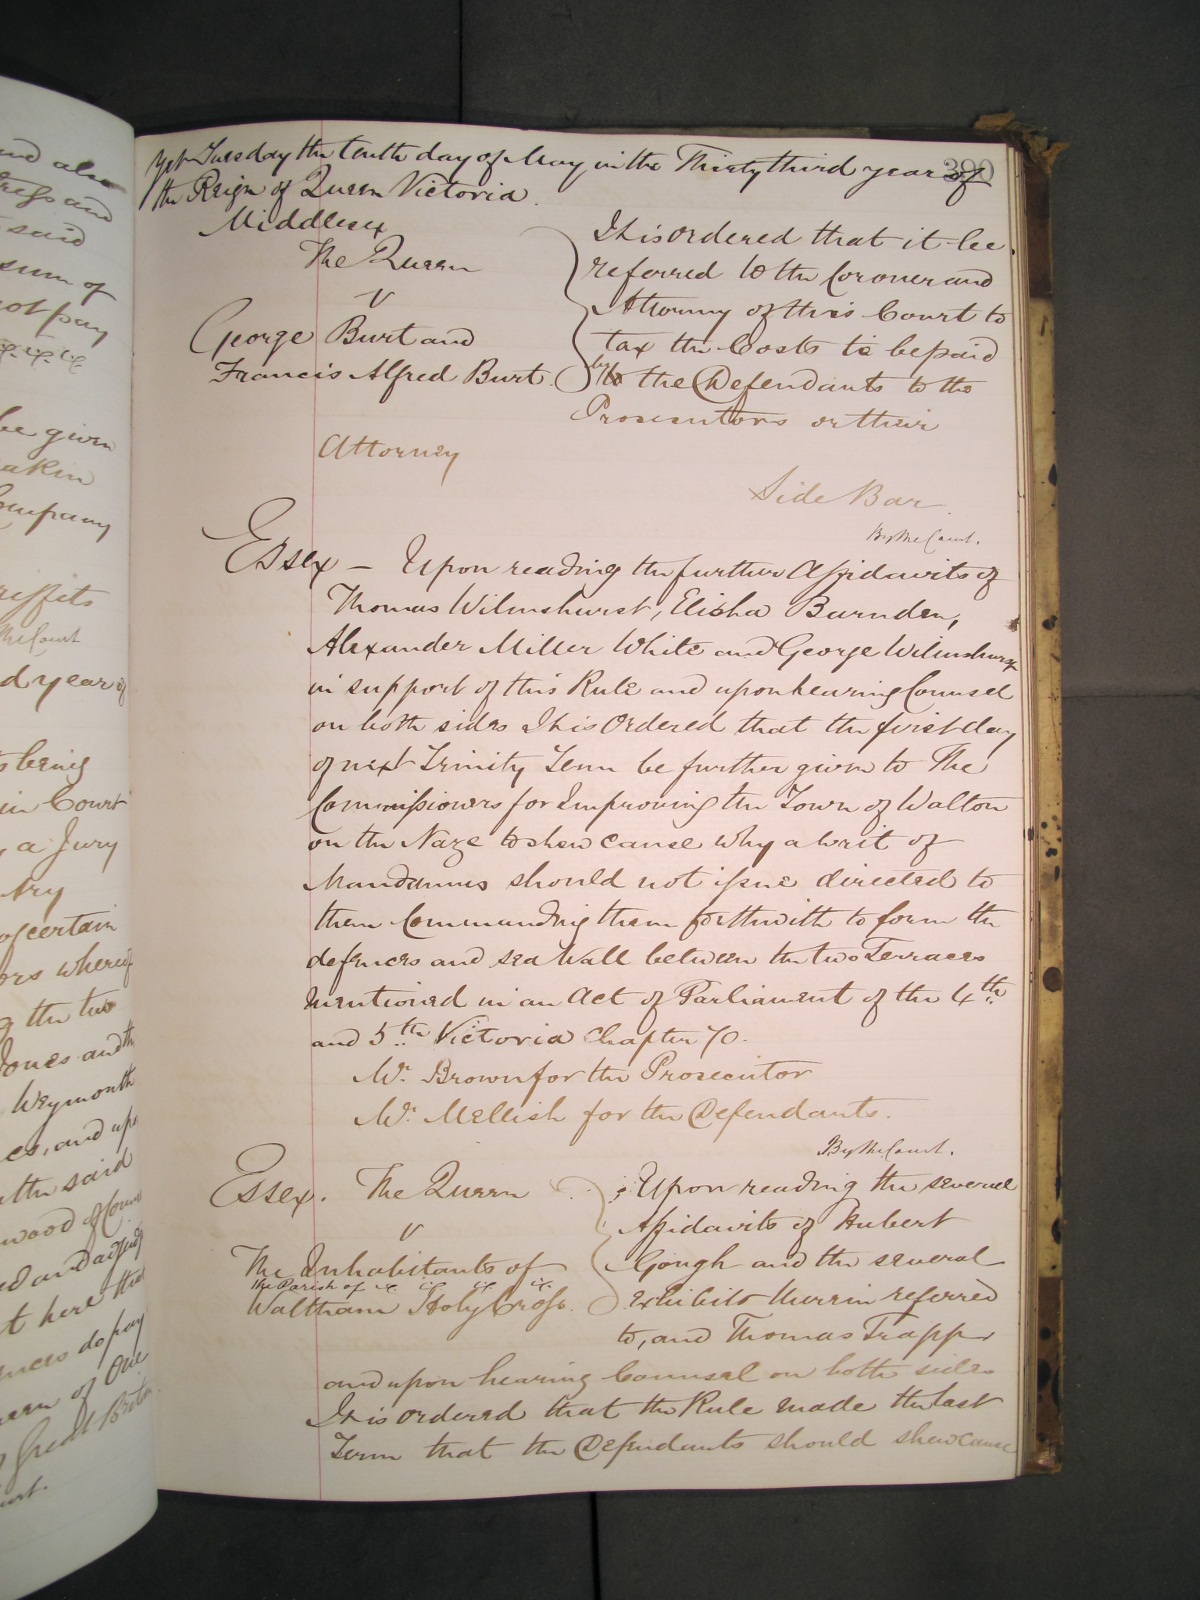 Yet Tuesday the tenth day of May in the Thirty third year of
390
the Reign of Queen Victoria.
Middlesex
The Queen
v
George Burt and
Francis Alfred Burt.
It is ordered that it be
referred to the Coroner and
Attorney of this Court to
tax the Costs to be paid
by the Defendants to the
Prosecutors or their
Attorney
Side Bar
By the Court.
Essex – Upon reading the further Affidavits of
Thomas Wilmshurst, Elisha Barnden,
Alexander Miller White and George Wilmshurst
in support of this Rule and upon hearing Counsel
on both sides It is Ordered that the first day
of next Trinity Term be further given to The
Commissioners for Improving the Town of Walton
on the Naze to shew cause why a writ of
Mandamus should not issue directed to
them Commanding them forthwith to form the
defences and sea Wall between the two Terraces
mentioned in an Act of Parliament of the 4th
and 5th Victoria Chapter 70.
Mr. Brown for the Prosecutor
Mr. Mellish for the Defendants.
By the Court.
Essex. The Queen
v
The Inhabitants of
the Parish of
Waltham Holy Cross.
Upon reading the several
Affidavits of Hubert
Gough and the several
exhibits therein referred
to, and Thomas Trapp
and upon hearing Counsel on both sides
It is ordered that the Rule made the last
Term that the Defendants should shew cause
and also
and
said
sum of
not pay
be given
Company
the Court
d year of
being
in Court
a Jury
of certain
the two
Jones and the
Weymouth
and
the said
wood of
t here
do pay
of One
Great